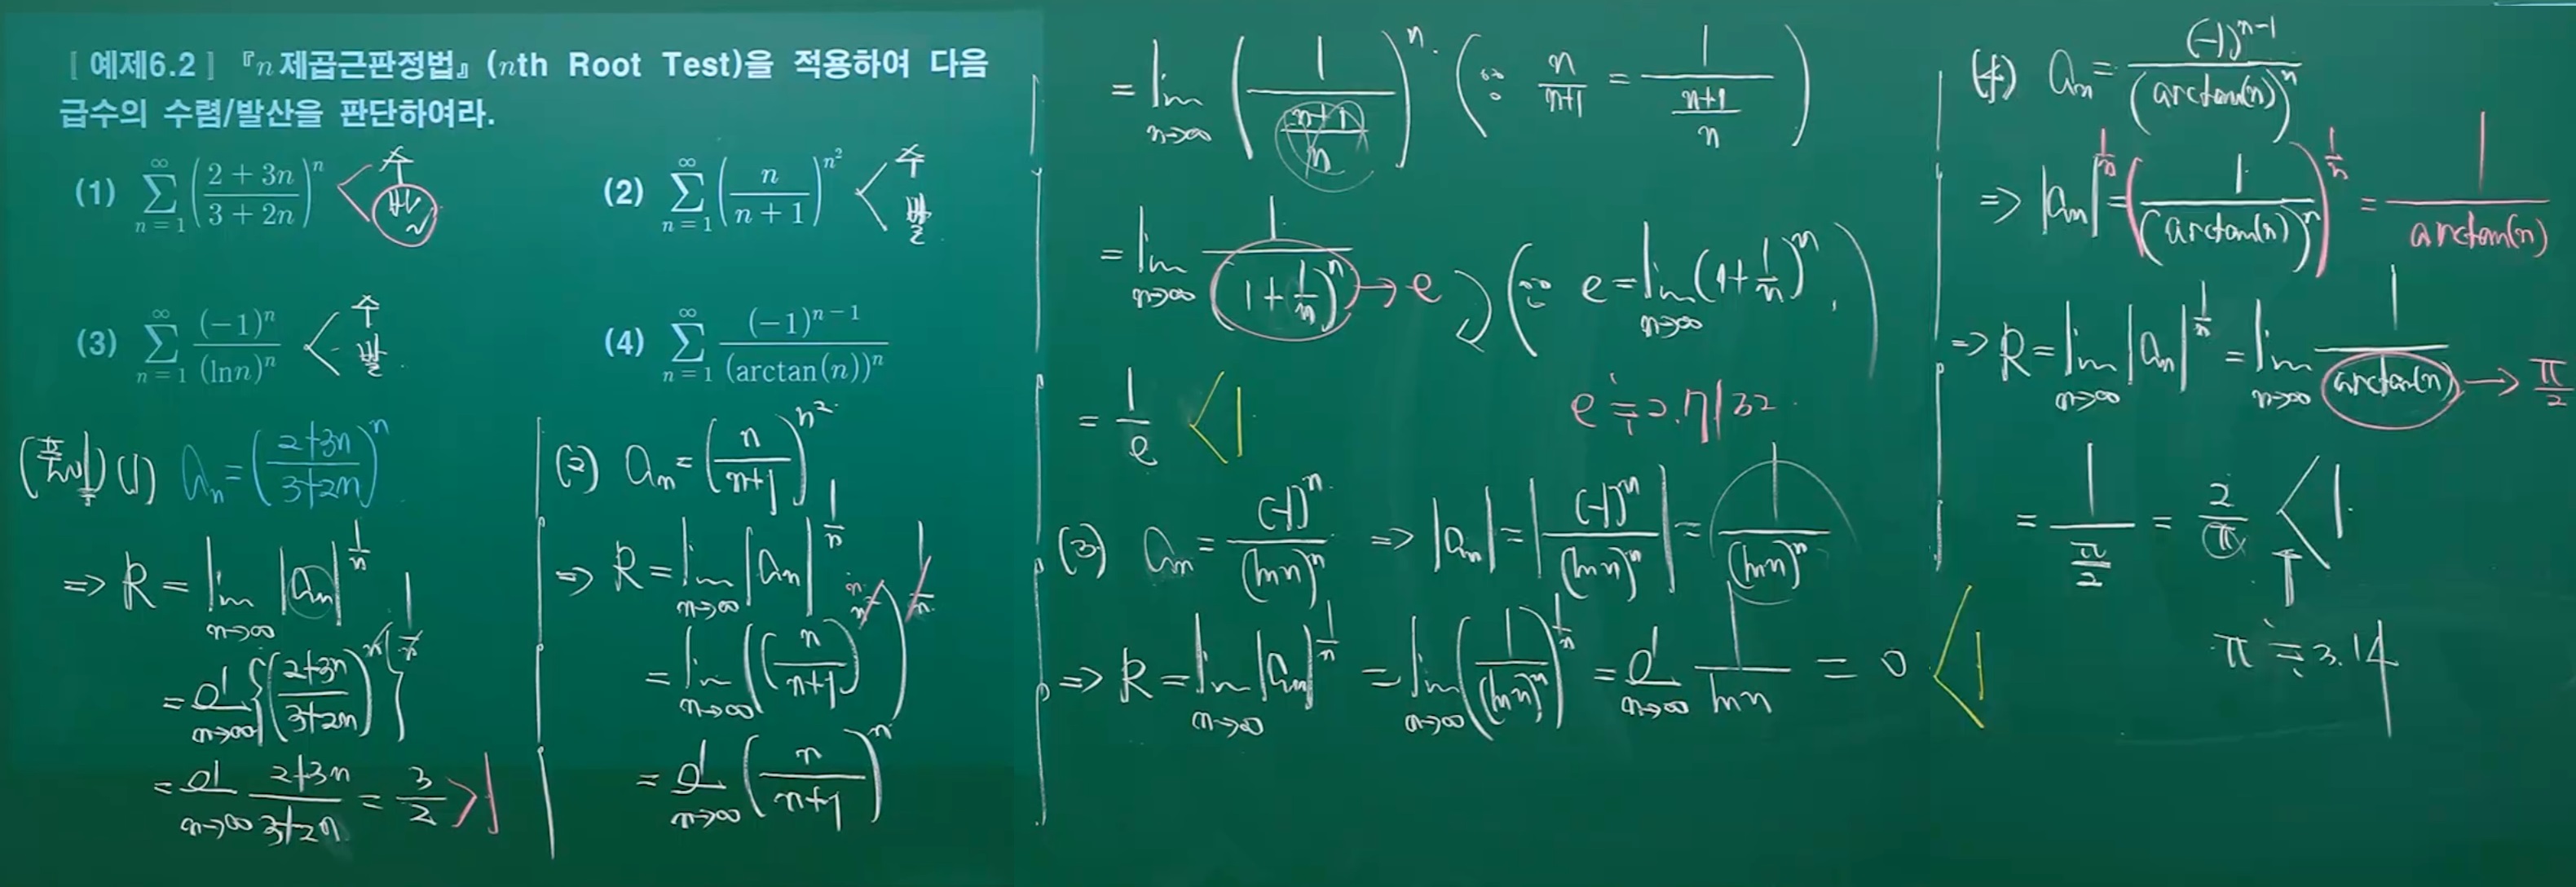 [ 예제6.2 ] 『n제곱근판정법』(nth Root Test)을 적용하여 다음
급수의 수렴/발산을 판단하여라.
(1) \sum_{n=1}^{∞} \left(\frac{2+3n}{3+2n}\right)^n < 수 발
(2) \sum_{n=1}^{∞} \left(\frac{n}{n+1}\right)^{n^2} < 수 발
(3) \sum_{n=1}^{∞} \frac{(-1)^n}{(\ln n)^n} < 수 발
(4) \sum_{n=1}^{∞} \frac{(-1)^{n-1}}{(\arctan(n))^n}
(풀이) (1) a_n = \left(\frac{2+3n}{3+2n}\right)^n
⇒ R = \lim_{n→∞} |a_n|^{\frac{1}{n}}
= \lim_{n→∞} \left\{\left(\frac{2+3n}{3+2n}\right)^n\right\}^{\frac{1}{n}}
= \lim_{n→∞} \frac{2+3n}{3+2n} = \frac{3}{2} > 1
(2) a_n = \left(\frac{n}{n+1}\right)^{n^2}
⇒ R = \lim_{n→∞} |a_n|^{\frac{1}{n}}
= \lim_{n→∞} \left(\left(\frac{n}{n+1}\right)^{n^2}\right)^{\frac{1}{n}}
= \lim_{n→∞} \left(\frac{n}{n+1}\right)^n
= \lim_{n→∞} \left(\frac{1}{\frac{n+1}{n}}\right)^n. (∵ \frac{n}{n+1} = \frac{1}{\frac{n+1}{n}})
= \lim_{n→∞} \frac{1}{\left(1+\frac{1}{n}\right)^n} → e (∵ e = \lim_{n→∞} (1+\frac{1}{n})^n.)
= \frac{1}{e} < 1
e ≒ 2.7132
(3) a_n = \frac{(-1)^n}{(\ln n)^n} ⇒ |a_n| = \left|\frac{(-1)^n}{(\ln n)^n}\right| = \frac{1}{(\ln n)^n}
⇒ R = \lim_{n→∞} |a_n|^{\frac{1}{n}} = \lim_{n→∞} \left(\frac{1}{(\ln n)^n}\right)^{\frac{1}{n}} = \lim_{n→∞} \frac{1}{\ln n} = 0 < 1
(4) a_n = \frac{(-1)^{n-1}}{(\arctan(n))^n}
⇒ |a_n|^{\frac{1}{n}} = \left(\frac{1}{(\arctan(n))^n}\right)^{\frac{1}{n}} = \frac{1}{\arctan(n)}
⇒ R = \lim_{n→∞} |a_n|^{\frac{1}{n}} = \lim_{n→∞} \frac{1}{\arctan(n)} → \frac{π}{2}
= \frac{1}{\frac{π}{2}} = \frac{2}{π} < 1.
π ≒ 3.14